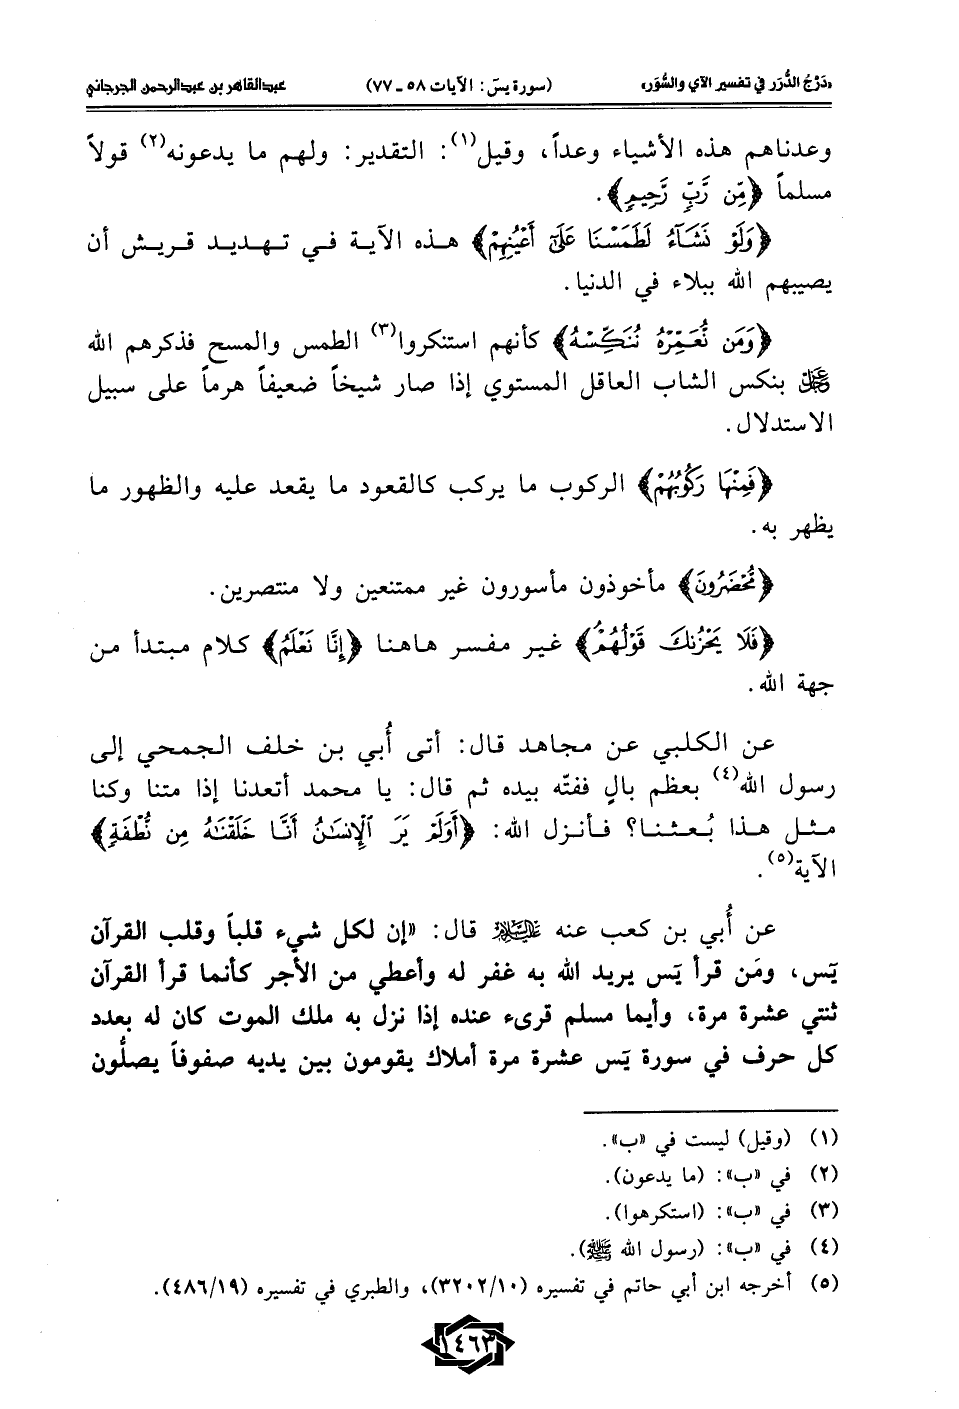 «دَرْجُ الدُّرَر في تفسير الآي والسُّوَر» (سورة يسٓ: الآيات ٥٨ ـ ٧٧) عبدالقاهر بن عبدالرحمن الجرجاني
وعدناهم هذه الأشياء وعداً، وقيل(١): التقدير: ولهم ما يدعونه(٢) قولاً
مسلماً ﴿مِّن رَّبٍّ رَّحِيمٍ﴾.
﴿وَلَوْ نَشَآءُ لَطَمَسْنَا عَلَىٰٓ أَعْيُنِهِمْ﴾ هذه الآية في تهديد قريش أن
يصيبهم الله ببلاء في الدنيا.
﴿وَمَن نُّعَمِّرْهُ نُنَكِّسْهُ﴾ كأنهم استنكروا(٣) الطمس والمسح فذكرهم الله
عَزَّوَجَلَّ بنكس الشاب العاقل المستوي إذا صار شيخاً ضعيفاً هرماً على سبيل
الاستدلال.
﴿فَمِنْهَا رَكُوبُهُمْ﴾ الركوب ما يركب كالقعود ما يقعد عليه والظهور ما
يظهر به.
﴿مُّحْضَرُونَ﴾ مأخوذون مأسورون غير ممتنعين ولا منتصرين.
﴿فَلَا يَحْزُنكَ قَوْلُهُمْ﴾ غير مفسر هاهنا ﴿إِنَّا نَعْلَمُ﴾ كلام مبتدأ من
جهة الله.
عن الكلبي عن مجاهد قال: أتى أُبي بن خلف الجمحي إلى
رسول الله(٤) بعظم بالٍ ففتّه بيده ثم قال: يا محمد أتعدنا إذا متنا وكنا
مثل هذا بُعثنا؟ فأنزل الله: ﴿أَوَلَمْ يَرَ ٱلْإِنسَٰنُ أَنَّا خَلَقْنَٰهُ مِن نُّطْفَةٍ﴾
الآية(٥).
عن أُبي بن كعب عنه عَلَيْهِ السَّلَام قال: «إن لكل شيء قلباً وقلب القرآن
يَس، ومَن قرأ يَس يريد الله به غفر له وأعطي من الأجر كأنما قرأ القرآن
ثنتي عشرة مرة، وأيما مسلم قرىء عنده إذا نزل به ملك الموت كان له بعدد
كل حرف في سورة يَس عشرة مرة أملاك يقومون بين يديه صفوفاً يصلُّون
(١) (وقيل) ليست في «ب».
(٢) في «ب»: (ما يدعون).
(٣) في «ب»: (استكرهوا).
(٤) في «ب»: (رسول الله ﷺ).
(٥) أخرجه ابن أبي حاتم في تفسيره (٣٢٠٢/١٠)، والطبري في تفسيره (٤٨٦/١٩).
١٤٦٣